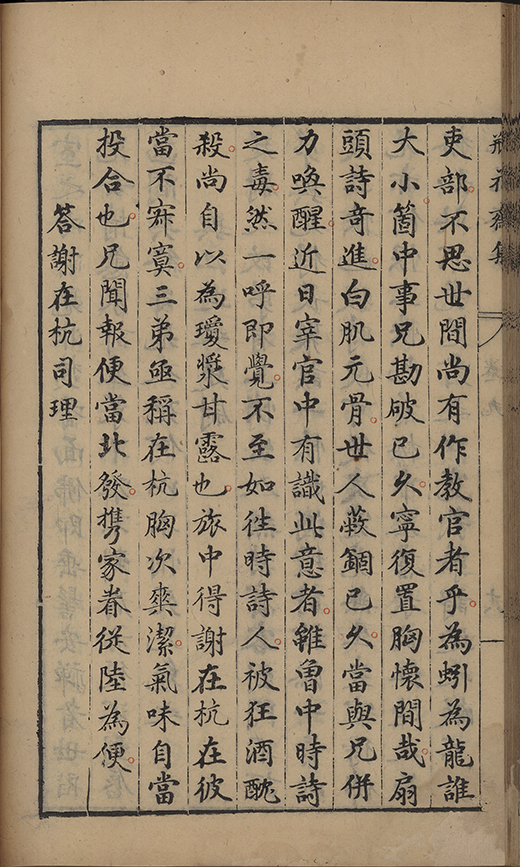 瓶花齋集
卷九
吏部不思世間尚有作教官者乎為蚓為龍誰
大小箇中事兄勘破已久寧復置胸懷間哉扇
頭詩奇進白肌元骨世人蔽錮已久當與兄併
力喚醒近日宰官中有識此意者雖曾中時詩
之毒然一呼即覺不至如徃時詩人被狂酒酖
殺尚自以為瓊漿甘露也旅中得謝在杭在彼
當不寂寞三弟亟稱在杭胸次爽潔氣味自當
投合也兄聞報便當北發攜家眷從陸為便
答謝在杭司理